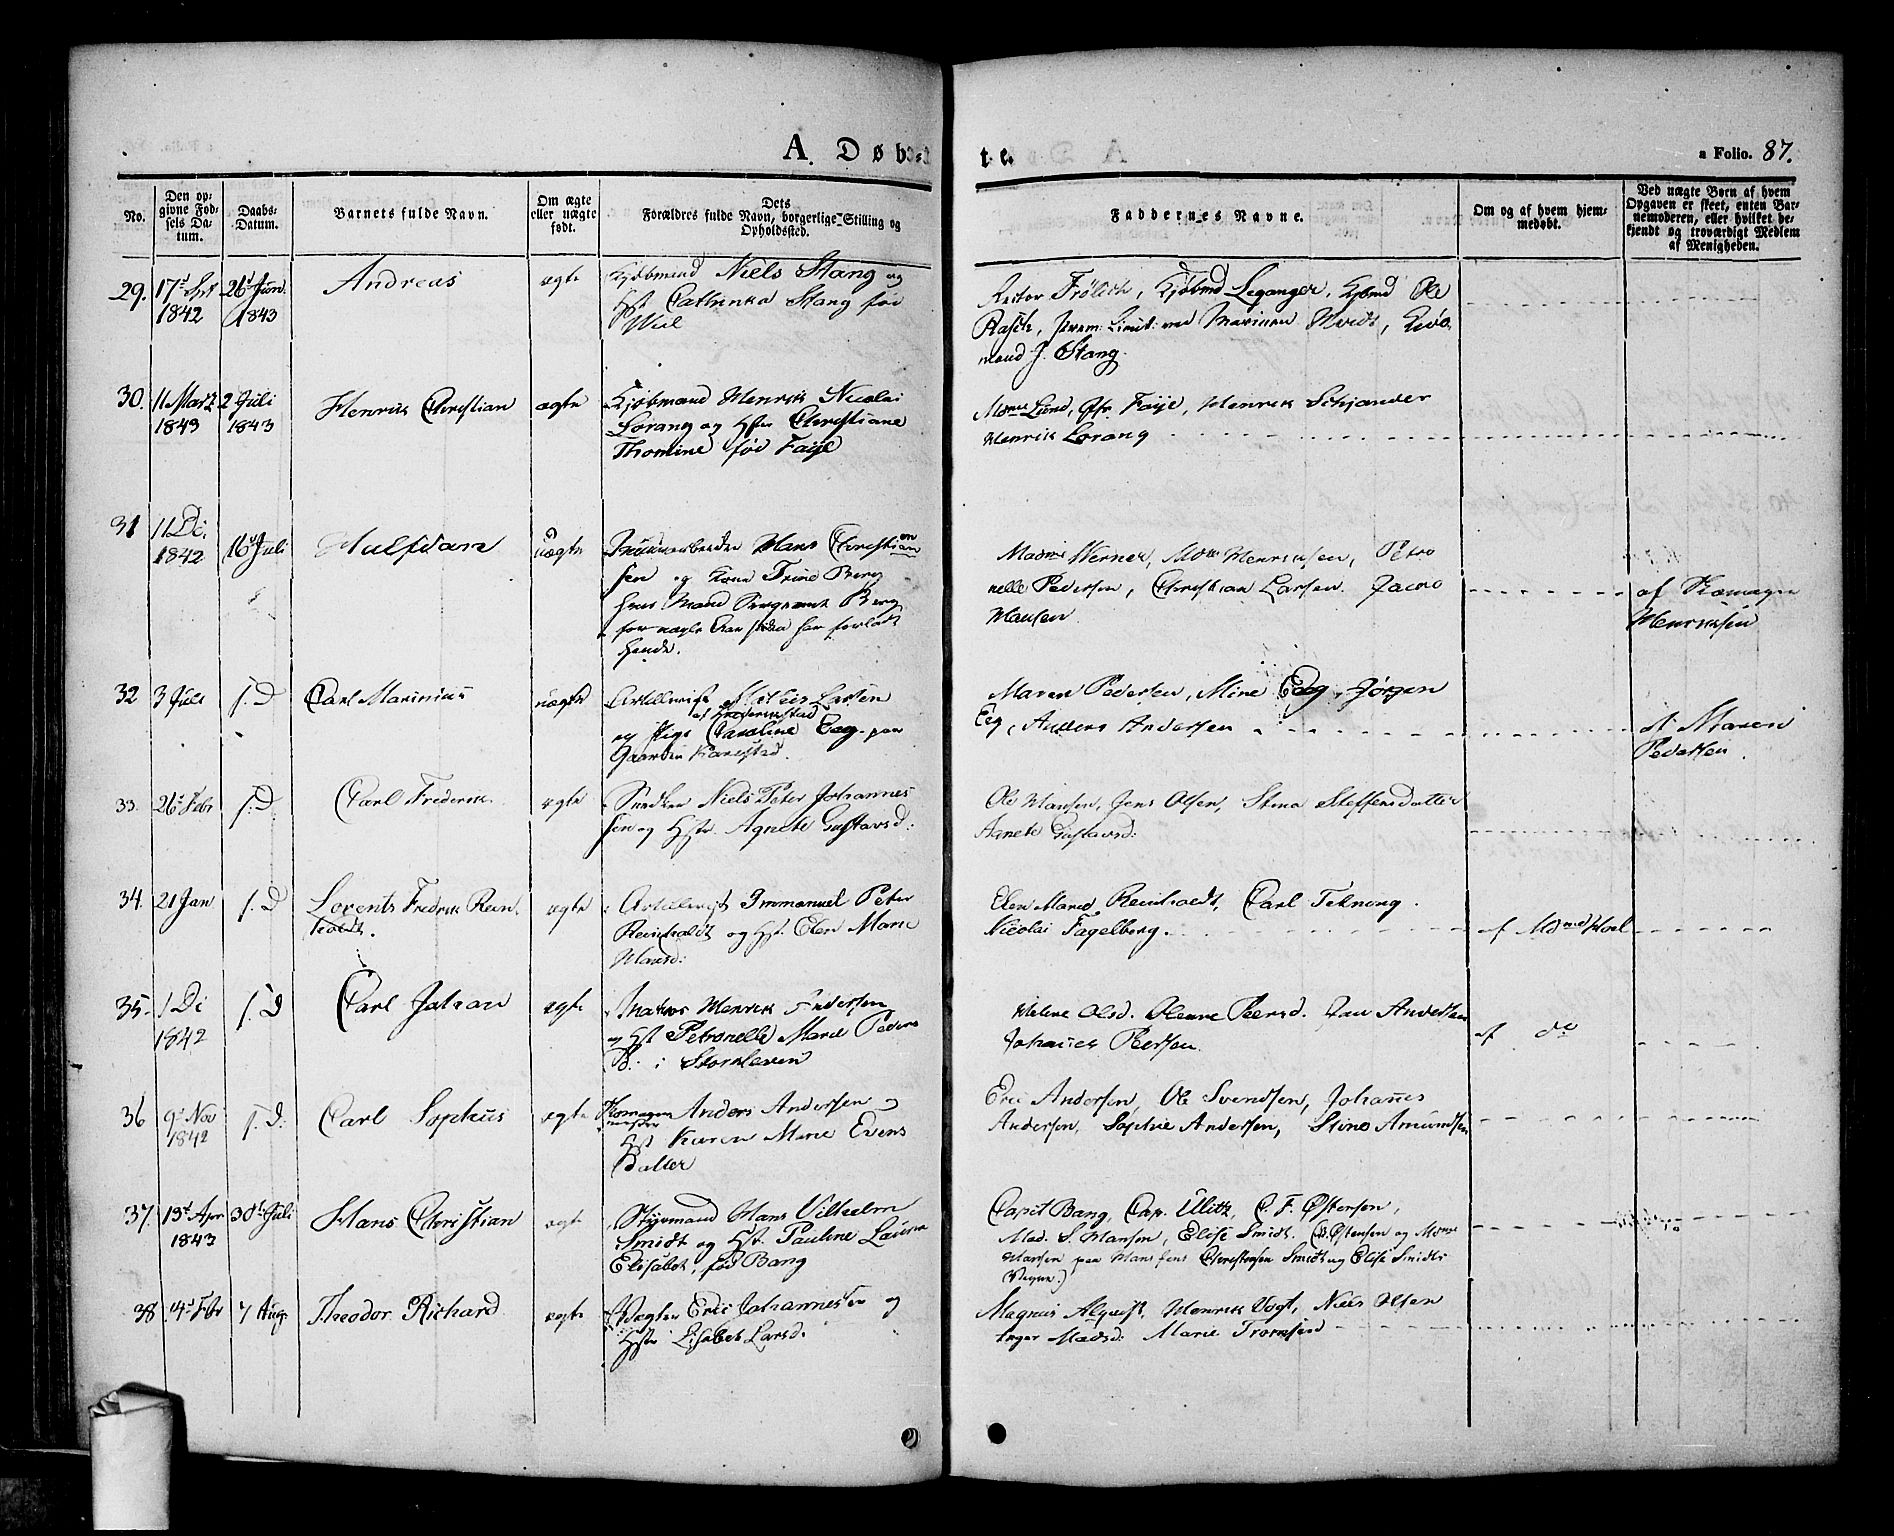 A. Døbte.
a Folio. 87.
No.
Den opgivne Fødsels Datum.
Daabs-Datum.
Barnets fulde Navn.
Om ægte eller uægte født.
Dets Forældres fulde Navn, borgerlige Stilling og Opholdssted.
Faddernes Navne.
Om og af hvem hjemmedøbt.
Ved uægte Børn af hvem Opgaven er skeet, enten Barnemoderen, eller hvilket bekjendt og troværdigt Medlem af Menigheden.
29. 17d 1842 26d Juni 1843 Andreas ægte Kjøbmand Niels Stang og
Hst Cathinka Stang fød
Wiel
Frølich, Kjøbmd Leganger, Kjbmd Ole
Rasch, prem: Lieut: ved Marinen
mand J. Stang.
30. 11 Marts 1843 2 Juli 1843 Henrik Christian ægte Kjøbmand Henrik Nicolai
Lorang og Hst Christiane
Thomine fød Faye
Mdme Lund, Jfr. Faye, Henrik Schjander
Henrik Lorang
31 11 De. 1842 16d Juli Halfdan uægte Hans Christian
sen og Kone Trine Berg
hvis Mand Sergeant Berg
for nogle Aar siden har forladt
hende.
Madme Werner, Mdm Henriksen, Petro
nelle Pedersen, Christian Larsen. Jacob
Hansen.
af
Henriksen
32 3 Juli s. D Carl Marinius uægte Artillerist Larsen
af Frederikstad
og Pige Caroline Eeg paa
Gaarden
Maren Pedersen, Mine Eeg, Jørgen
Eeg, Anders Andersen
af Maren
Pedersen.
33. 26d Febr s. D. Carl Frederik ægte Niels Peter Johannes
sen og Hst. Agnete Gustavsd:
Ole Hansen, Jens Olsen, Stina Steffensdatter
Agnete Gustavsd:
34. 21 Jan s. D Lorents Fredrik Rein
holdt.
ægte Artillerist Immanuel Peter
Reinholdt og Hst. Elen Marie
Hansd:
Elen Marie Reinholdt, Carl Teknong.
Nicolai Fagelberg.
af Mdme Hoel
35. 1 De 1842 s. D Carl Johan ægte Matros Henrik Andersen
og Hst Petronelle Marie Peders
D. i Storkleven
Helene Olsd. Olenne Peersd. Jan Andersen
Johannes Peersen.
af do
36 9d Nov 1842 s. D. Carl Sophus ægte Anders Andersen og
Hst Karen Marie Evens
Datter
Eric Andersen, Ole Svendsen, Johannes
Andersen, Sophie Andersen, Stine Amundsen
37. 13d Apr 1843 30d Juli Hans Christian ægte Styrmand Hans Vilhelm
Smidt og Hst. Pauline Laura
Elisabet, fød Bang
Capit Bang, Cap. Ullitz, C. F. Østensen,
Mad. S. Hansen, Elise Smidt. (C. Østensen og Mdme
Hansen paa Hans Christensen Smidt og Elise Smidts
Vegne.)
38 14d Febr 7 Aug. Theodor Richard ægte Vægter Eric Johannesen og
Hst Lisabet Larsd.
Magnus Alqvist, Henrik Vogt, Niels Olsen
Inger Madsd. Marie